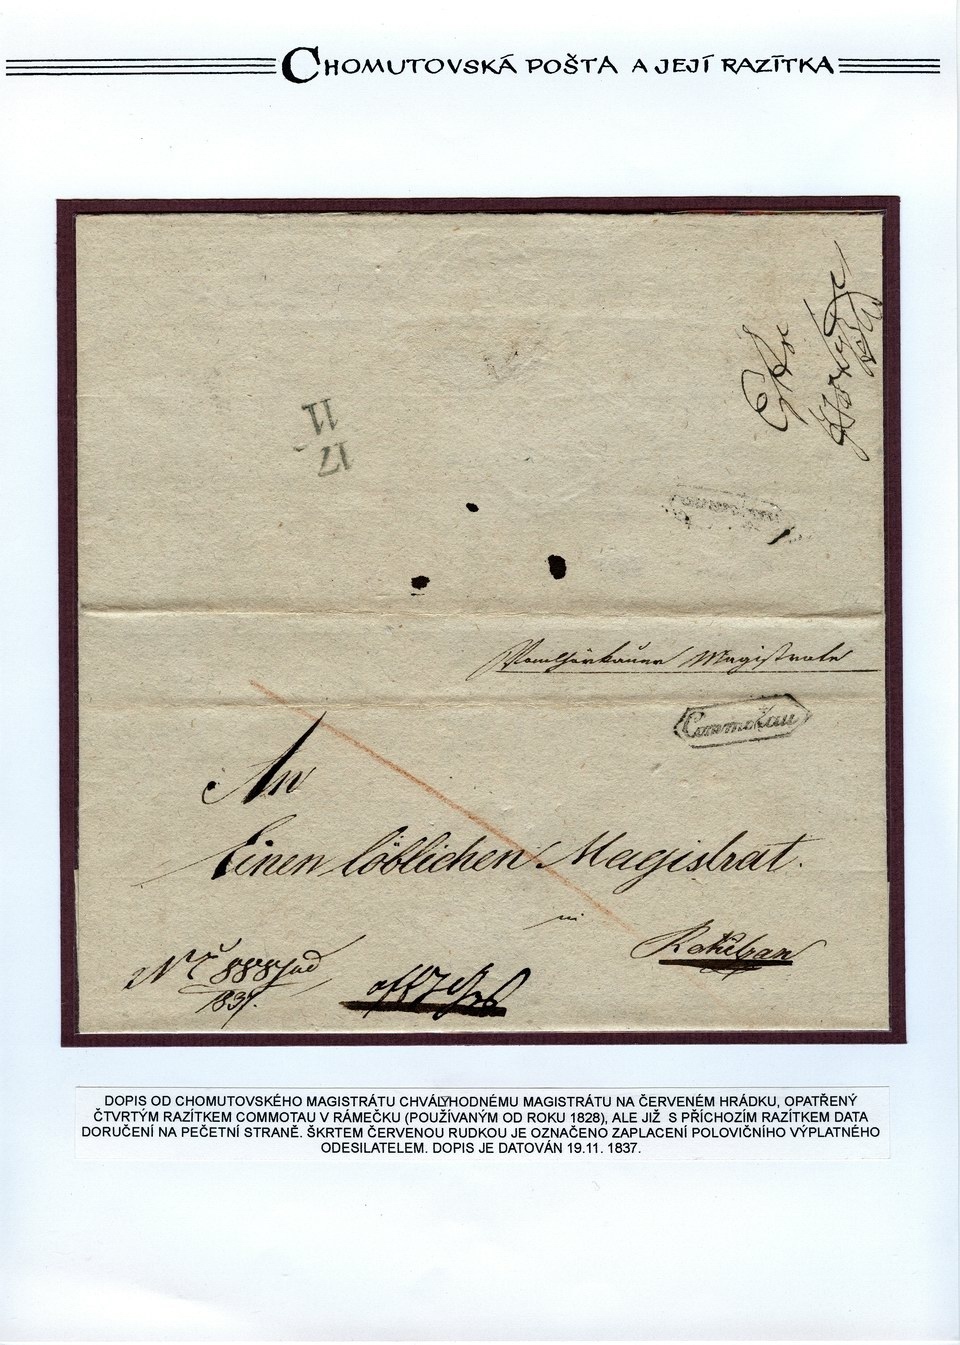 CHOMUTOVSKÁ POŠTA A JEJÍ RAZÍTKA
11
17
Magistrate
Commotau
An
Einen löblichen Magistrat.
in
Nr
1837.
DOPIS OD CHOMUTOVSKÉHO MAGISTRÁTU CHVÁLYHODNÉMU MAGISTRÁTU NA ČERVENÉM HRÁDKU, OPATŘENÝ
ČTVRTÝM RAZÍTKEM COMMOTAU V RÁMEČKU (POUŽÍVANÝM OD ROKU 1828), ALE JIŽ S PŘÍCHOZÍM RAZÍTKEM DATA
DORUČENÍ NA PEČETNÍ STRANĚ. ŠKRTEM ČERVENOU RUDKOU JE OZNAČENO ZAPLACENÍ POLOVIČNÍHO VÝPLATNÉHO
ODESILATELEM. DOPIS JE DATOVÁN 19.11. 1837.